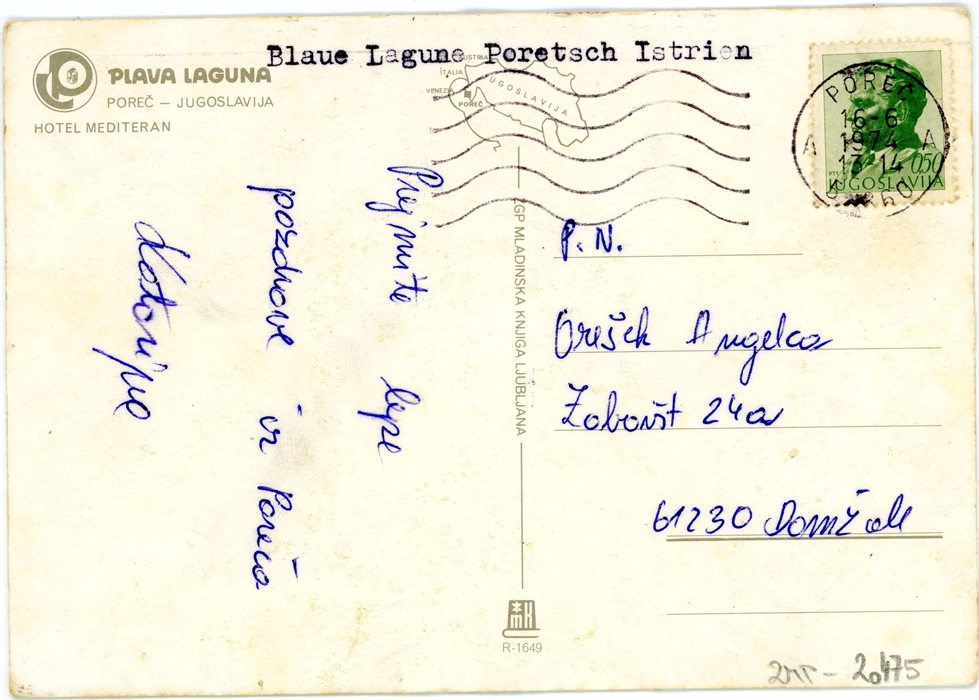 Blaue Lagune Poretsch Istrien
PLAVA LAGUNA
POREČ — JUGOSLAVIJA
HOTEL MEDITERAN
AUSTRIA
ITALIA
VENEZIA
POREČ
JUGOSLAVIJA
POREČ
16-6
1974
13-14
A A
0,50
JUGOSLAVIJA
Prejmite lepe
pozdrave iz Poreča
Katarina
ZGP MLADINSKA KNJIGA LJUBLJANA
P. N.
Orešek Angelca
24a
61230 Domžale
MK
R-1649